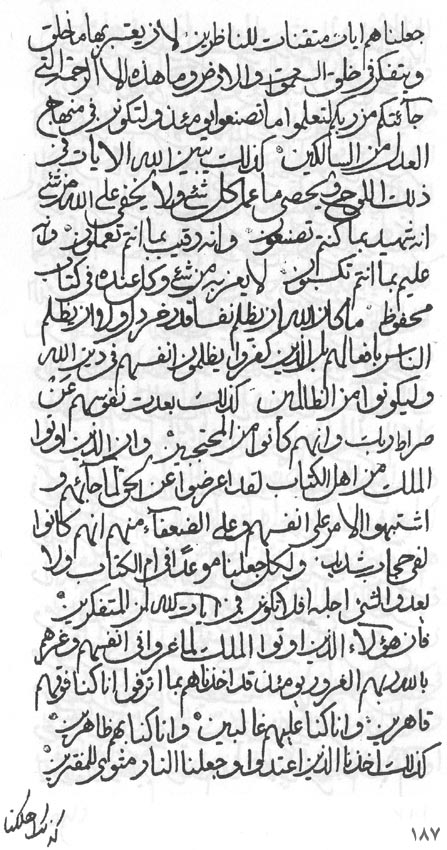 جعلناهم ايات متقنات للناظرين لان يعتبر بما خلق
ويتفكر في خلق السموات والارض وما هذه الا الرحمة التي
جائتكم من ربكم لتعلموا ما تصنعوا يومئذ ولتكونن في منهاج
العدل من السالكين كذلك يبين الله الايات في
ذلك اللوح ويحصي ما عمل كل شئ ولا يخفى على الله من شئ
انه شهيد بما كنتم تصنعون وانه رقيب بما انتم تعملون وانه
عليم بما انتم تكسبون لا يعزب من شئ وكل عنده في كتاب
محفوظ ما كان الله ان يظلم نفسا قدر خردل ولا ان يظلم
الناس بافعالهم بل الذين كفروا يظلمون انفسهم في دين الله
وليكونوا من الظالمين كذلك بعدت نفوسهم عن
صراط ربك وانهم كانوا من المحتجبين وان الذين اوتوا
الملك من اهل الكتاب لقد اعرضوا عن الحق لما جائهم و
اشتبهوا الامر على انفسهم وعلى الضعفاء منهم انهم كانوا
لفي حجاب شديد ولكل جعلنا موعدا في ام الكتاب ولا
يعدو الشئ اجله افلا تكونن في ايات الله لمن المتفكرين
فان هؤلاء الذين اوتوا الملك لما غروا في انفسهم وغرهم
بالله ربهم الغرور يومئذ قد اخذناهم بما اترفوا انا كنا فوقهم
قاهرين وانا كنا عليهم غالبين وانا كنا بهم ظاهرين
كذلك اخذنا الذين اعتدوا وجعلنا النار مثوى للمقرين
كذلك اهلكنا
١٨٧